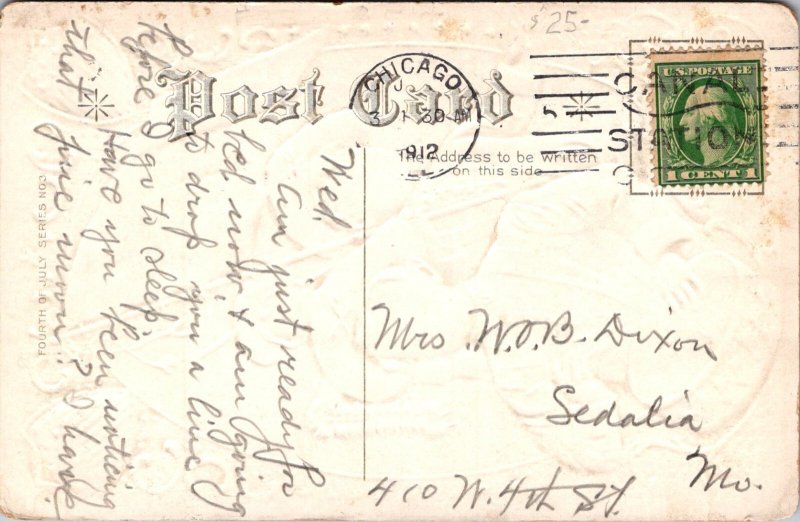 $25-
Post Card
CHICAGO
3 1 30 AM
1912
CANAL
STATION
U.S. POSTAGE
1 CENT 1
The Address to be written
on this side
FOURTH OF JULY SERIES NO 3
Wed.
Am just ready for
bed now & am going
to drop you a line
before I go to sleep.
Have you been noticing
that fine moon? I have.
Mrs. W.O.B. Dixon
Sedalia
Mo.
410 W. 4th St.